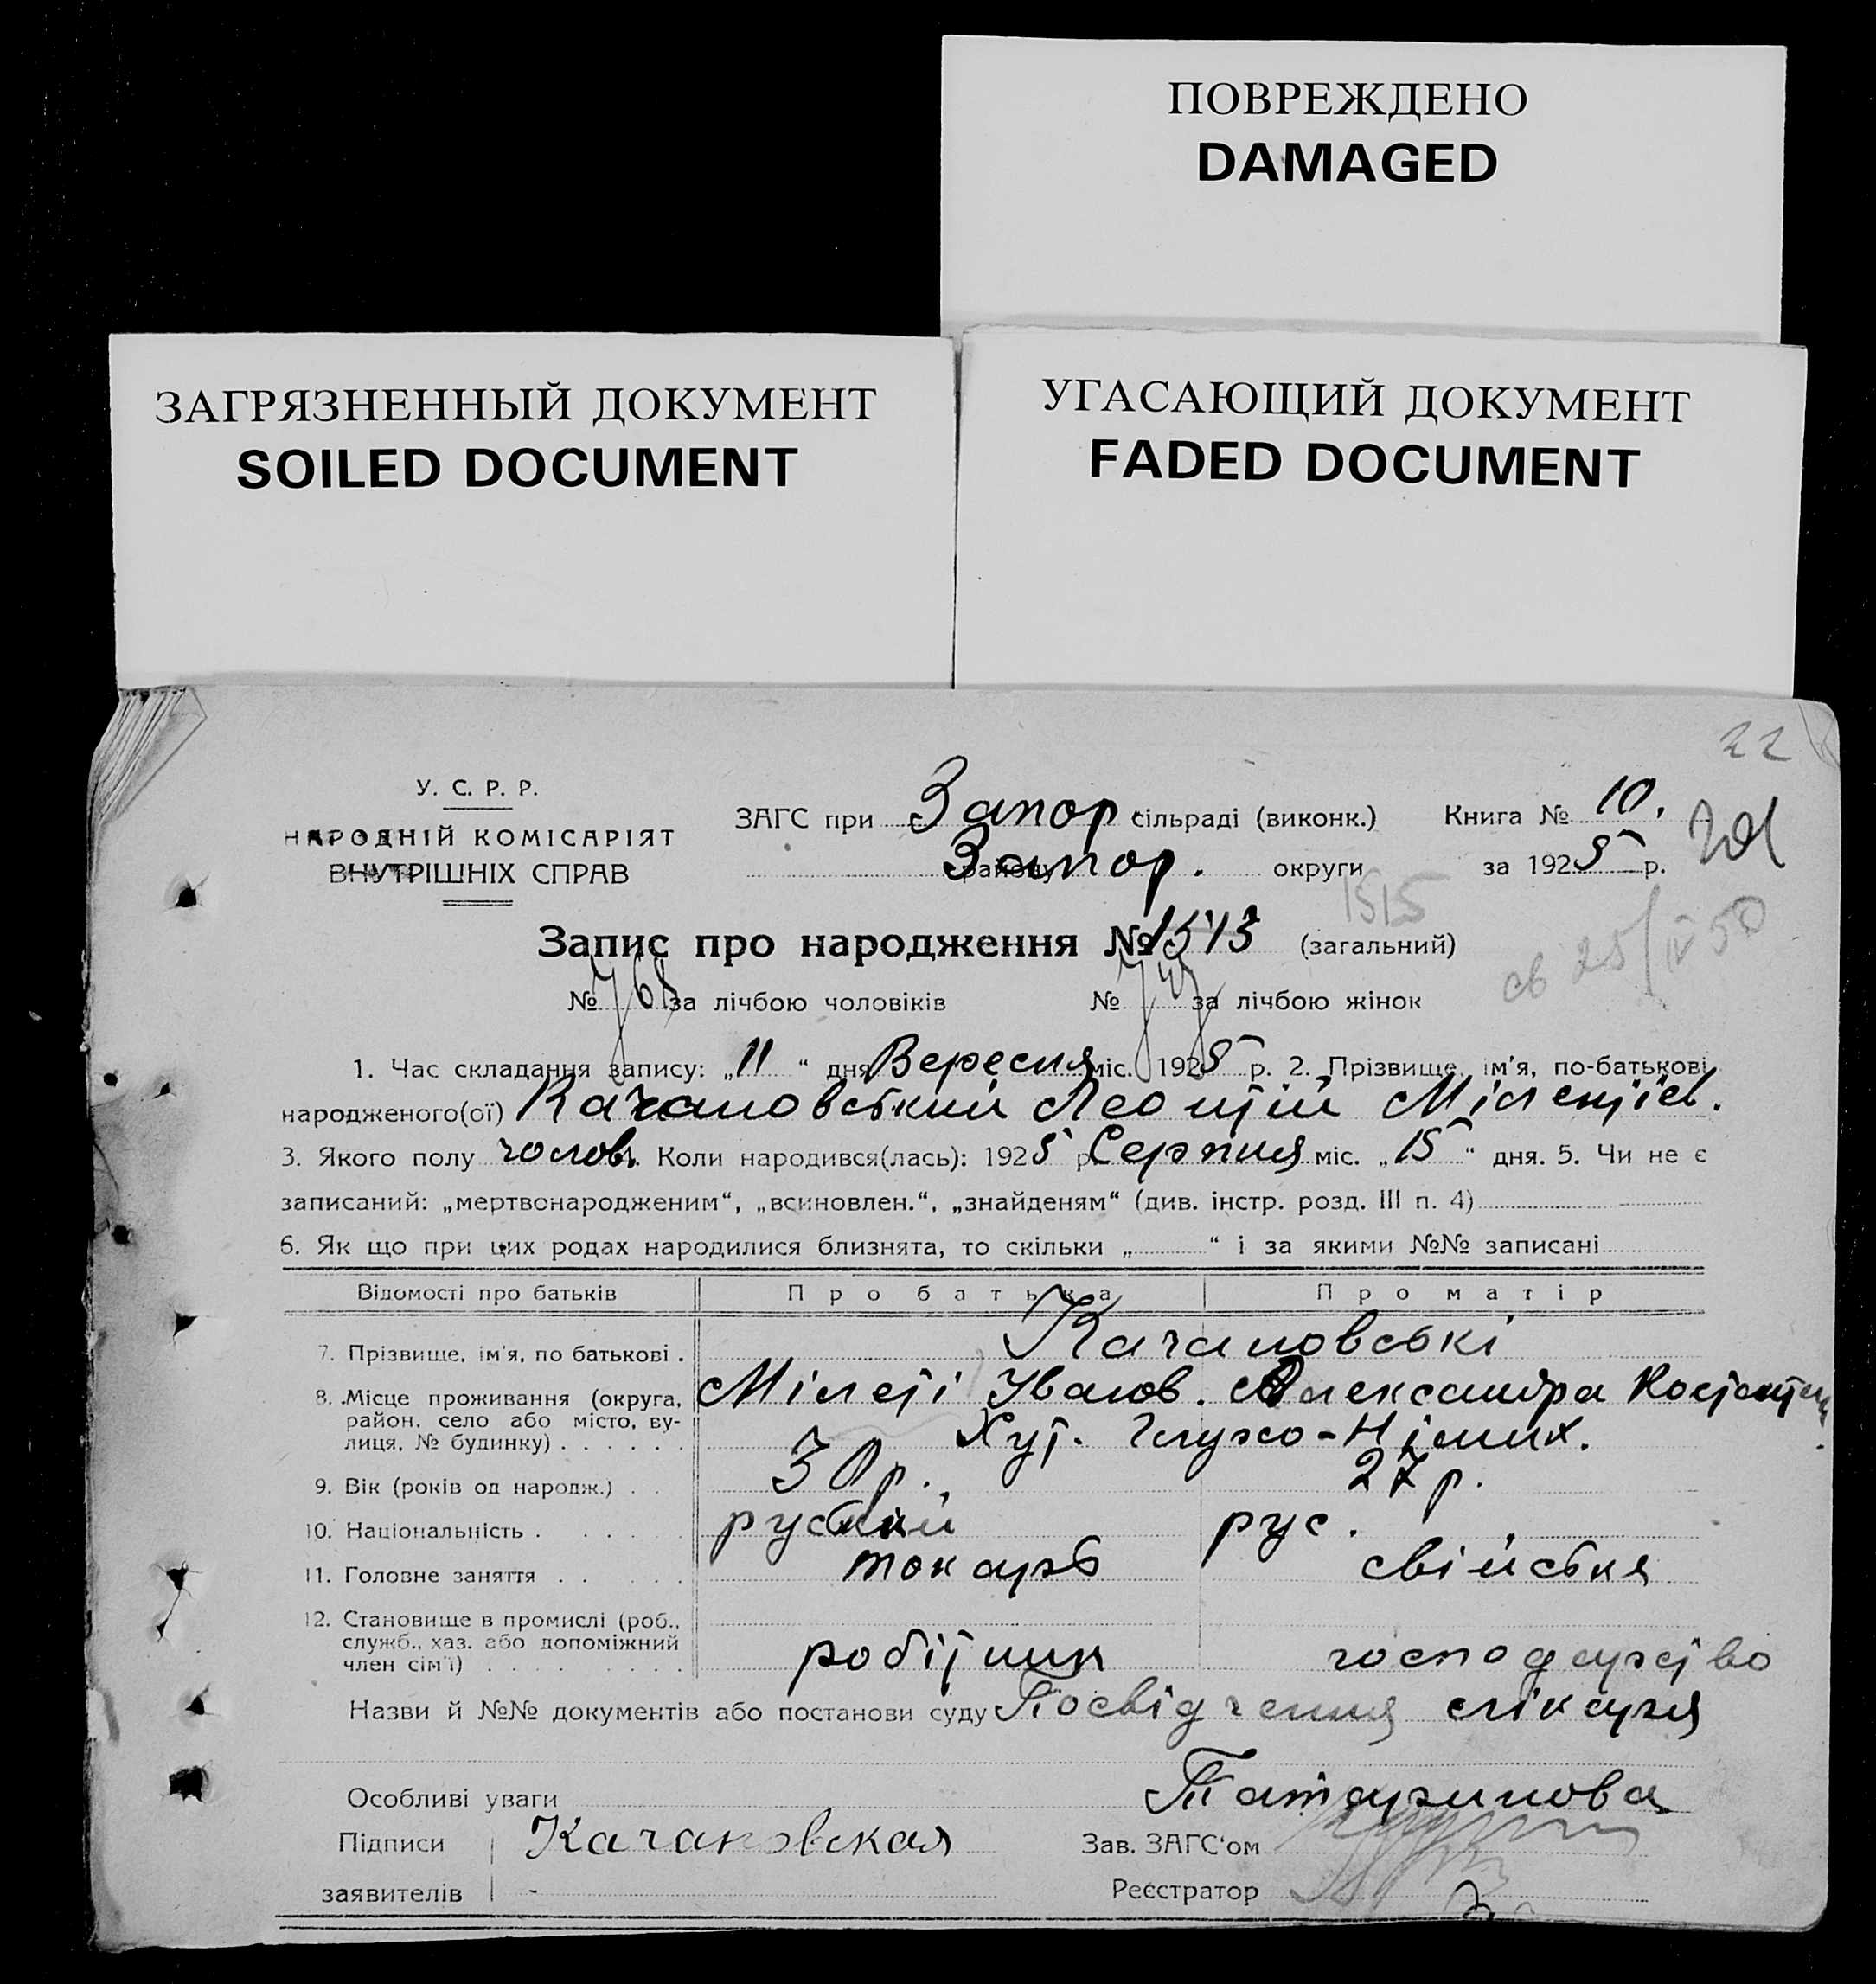 ПОВРЕЖДЕНО
DAMAGED
ЗАГРЯЗНЕННЫЙ ДОКУМЕНТ
SOILED DOCUMENT
УГАСАЮЩИЙ ДОКУМЕНТ
FADED DOCUMENT
22
У. С. Р. Р.
НАРОДНІЙ КОМІСАРІЯТ
ВНУТРІШНІХ СПРАВ
ЗАГС при Запор сільраді (виконк.) Книга № 10.
району Запор. округи за 1925 р.
1515
Запис про народження № 1515 (загальний)
св 25/IV 50
№ 768 за лічбою чоловіків № 747 за лічбою жінок
1. Час складання запису: „11“ дня Вересня міс. 1925 р. 2. Прізвище, ім'я, по-батькові
народженого(ої) Качановський Леонтій Мілентіев.
3. Якого полу чолов. Коли народився(лась): 1925 р. Серпня міс. „15“ дня. 5. Чи не є
записаний: „мертвонародженим“, „всиновлен.“, „знайденям“ (див. інстр. розд. III п. 4)
6. Як що при цих родах народилися близнята, то скільки „ “ і за якими №№ записані
Відомості про батьків Про батька Про матір
7. Прізвище, ім'я, по батькові . Качановські
8. Місце проживання (округа, район, село або місто, вулиця, № будинку) . . . . . . Мілеті Іванов. Олександра Костянтин.
Хут. Глухо-Німих.
9. Вік (років од народж.) . . 30 р. 27 р.
10. Національність . . . . . руський рус.
11. Головне заняття . . . . . токарь свійське
12. Становище в промислі (роб., служб., хаз. або допоміжний член сім'ї) . . . . . . . . . робітник господарство
Назви й №№ документів або постанови суду Посвідчення лікаря
Татаринова
Особливі уваги
Підписи Качановская Зав. ЗАГС'ом
заявителів - Реєстратор